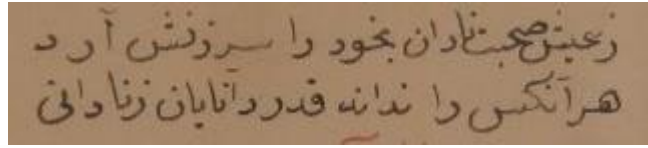 زعیش صحبت نادان بخود را سرزنش آرد
هر آنکس را نداند قدر دانایان ز نادانی